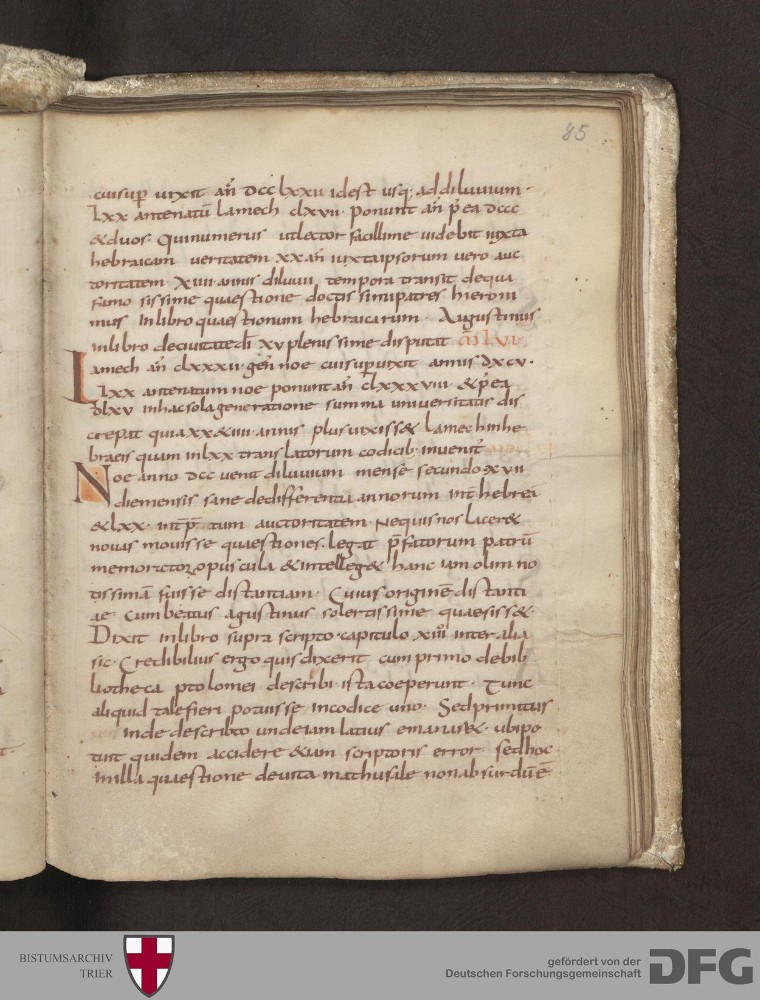 85
cuisup̄ uixit añ dcclxxii idest usq; addiluuium·
lxx antenatū lamech clxvii· ponunt añ p̄ ea dccc
&duos· Quinumerus utlector facillime uidebit iuxta
hebraicam ueritatem xx añ iuxtaipsorum uero auc
toritatem· xiiii annis diluuii tempora transit dequa
famo sissime quaestione doctissimipatres hieroni
mus Inlibro quaestionum hebraicarum· Augustinus
inlibro deciuitatedī xv plenissime disputat
Lamech añ clxxxii· geñ noe cuisup uixit annis dxcv·
lxx antenatum noe ponunt añ clxxxviii· &p̄ ea
dlxv inhacsolageneratione summa uniuersitatis dis
crepat quia xx&iiii annis plus uixiss& lamech inhe
braeis quam inlxx translatorum codicib; inuenit̄
Noe anno dcc uenit diluuium mense secundo xvii
diemensis sane dedifferentia annorum int̄ hebrei
&lxx· int̄p̄tum auctoritatem· Nequis nos lacer&
nouas mouisse quaestiones· legat p̄fatorum patrū
memoratorꝝ opuscula &intelleg& hanc iam olim no
tissimā fuisse distantiam· Cuius originē distanti
ae cum beatus agustinus solertissime quaesiss&·
Dixit inlibro supra scripto· capitulo xiii inter alia
sic· Credibilius ergo quis dixerit cum primo debib
liotheca ptolomei describi ista coeperunt· Tunc
aliquid talefieri potuisse incodice uno· Sedprimitus
inde descripto undeiam latius emanass&· ubipo
tuit quidem accidere &iam scriptoris error· sedhoc
inilla quaestione deuita mathusale nonabsurdū ē
BISTUMSARCHIV
TRIER
gefördert von der
Deutschen Forschungsgemeinschaft
DFG